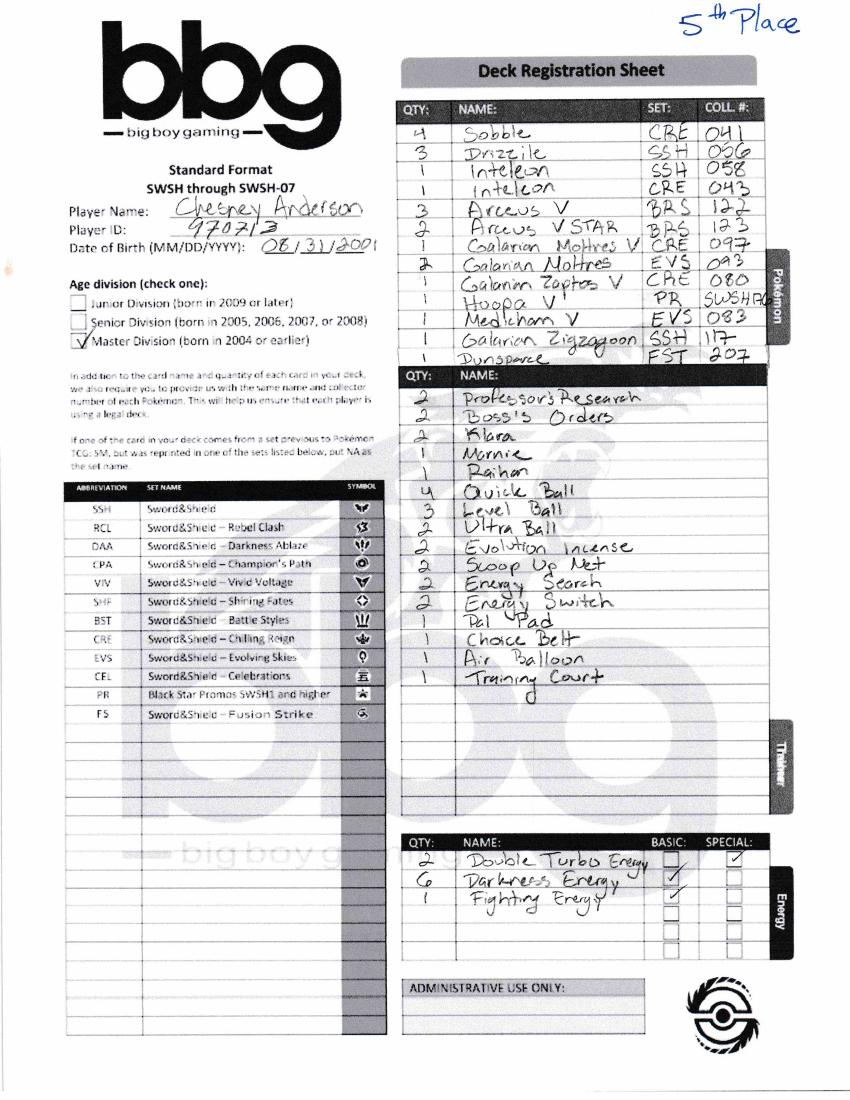 5th Place
bbg
big boy gaming
Standard Format
SWSH through SWSH-07
Player Name: Chesney Anderson
Player ID: 970713
Date of Birth (MM/DD/YYYY): 08/31/2001
Age division (check one):
Junior Division (born in 2009 or later)
Senior Division (born in 2005, 2006, 2007, or 2008)
Master Division (born in 2004 or earlier)
In addition to the card name and quantity of each card in your deck,
we also require you to provide us with the set name and collector
number of each Pokémon. This will help us ensure that each player is
using a legal deck.
If one of the card in your deck comes from a set previous to Pokémon
TCG: SM, but was reprinted in one of the sets listed below, put NA as
the set name.
ABBREVIATION SET NAME SYMBOL
SSH Sword&Shield
RCL Sword&Shield – Rebel Clash
DAA Sword&Shield – Darkness Ablaze
CPA Sword&Shield – Champion's Path
VIV Sword&Shield – Vivid Voltage
SHF Sword&Shield – Shining Fates
BST Sword&Shield – Battle Styles
CRE Sword&Shield – Chilling Reign
EVS Sword&Shield – Evolving Skies
CEL Sword&Shield – Celebrations
PR Black Star Promos SWSH1 and higher
FS Sword&Shield – Fusion Strike
Deck Registration Sheet
QTY: NAME: SET: COLL. #:
4 Sobble CRE 041
3 Drizzile SSH 056
1 Inteleon SSH 058
1 Inteleon CRE 043
3 Arceus V BRS 122
2 Arceus VSTAR BRS 123
1 Galarian Moltres V CRE 097
2 Galarian Moltres EVS 093
1 Galarian Zaptos V CRE 080
1 Hoopa V PR
1 Medicham V EVS 083
1 Galarian Zigzagoon SSH 117
1 Dunsparce FST 207
Pokémon
QTY: NAME:
2 Professor's Research
2 Boss's Orders
2 Klara
1 Marnie
1 Raihan
4 Quick Ball
3 Level Ball
2 Ultra Ball
2 Evolution Incense
2 Scoop Up Net
2 Energy Search
2 Energy Switch
1 Pal Pad
1 Choice Belt
1 Air Balloon
1 Training Court
Trainer
QTY: NAME: BASIC: SPECIAL:
2 Double Turbo Energy
6 Darkness Energy
1 Fighting Energy
Energy
ADMINISTRATIVE USE ONLY:
bbg
big boy gaming